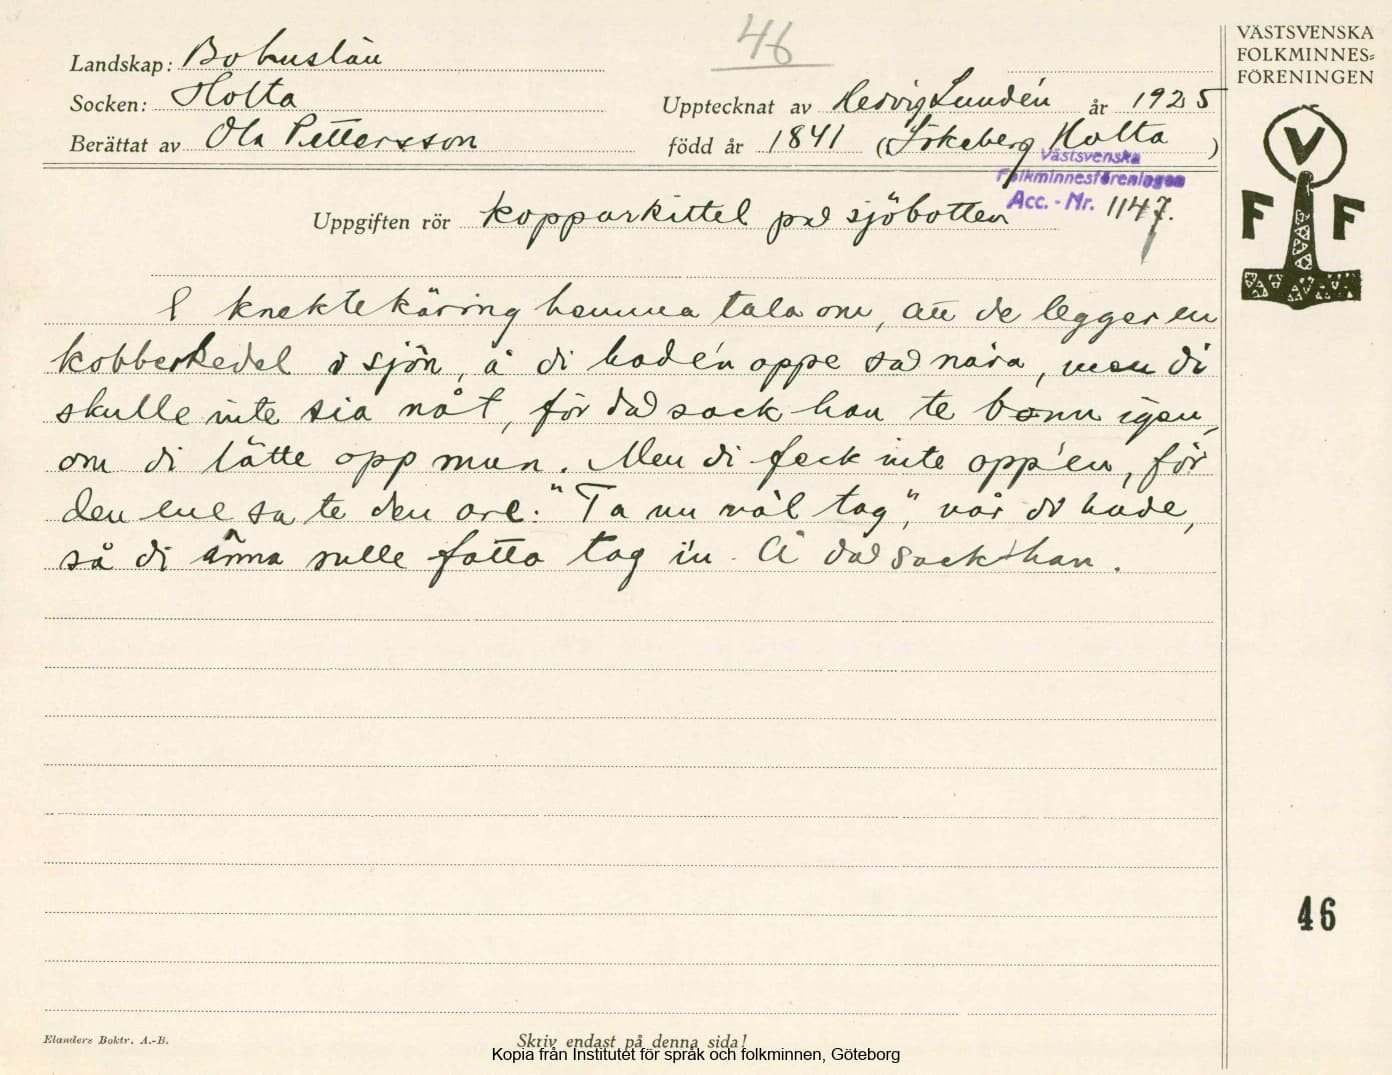 46
VÄSTSVENSKA
FOLKMINNES=
FÖRENINGEN
V
F F
Landskap: Bohuslän
Socken: Holta
Upptecknat av Hedvig Lundén år 1925
Berättat av Ola Pettersson född år 1841 (Holta)
Västsvenska
Folkminnesföreningen
Acc. - Nr. 1147.
Uppgiften rör kopparkittel på sjöbotten
E knektekäring hemma tala om, att de legger en
kobberkedel i sjön, å di hade'n oppe så nära, men di
skulle inte sia nåt, för då sack han te bonn igen,
om di lätte opp mun. Men di feck inte opp'en, för
den ene sa te den are: "Ta nu väl tag", når di hade,
så di änna sulle fatta tag i'n. Å då sack han.
46
Elanders Boktr. A.-B.
Skriv endast på denna sida!
Kopia från Institutet för språk och folkminnen, Göteborg